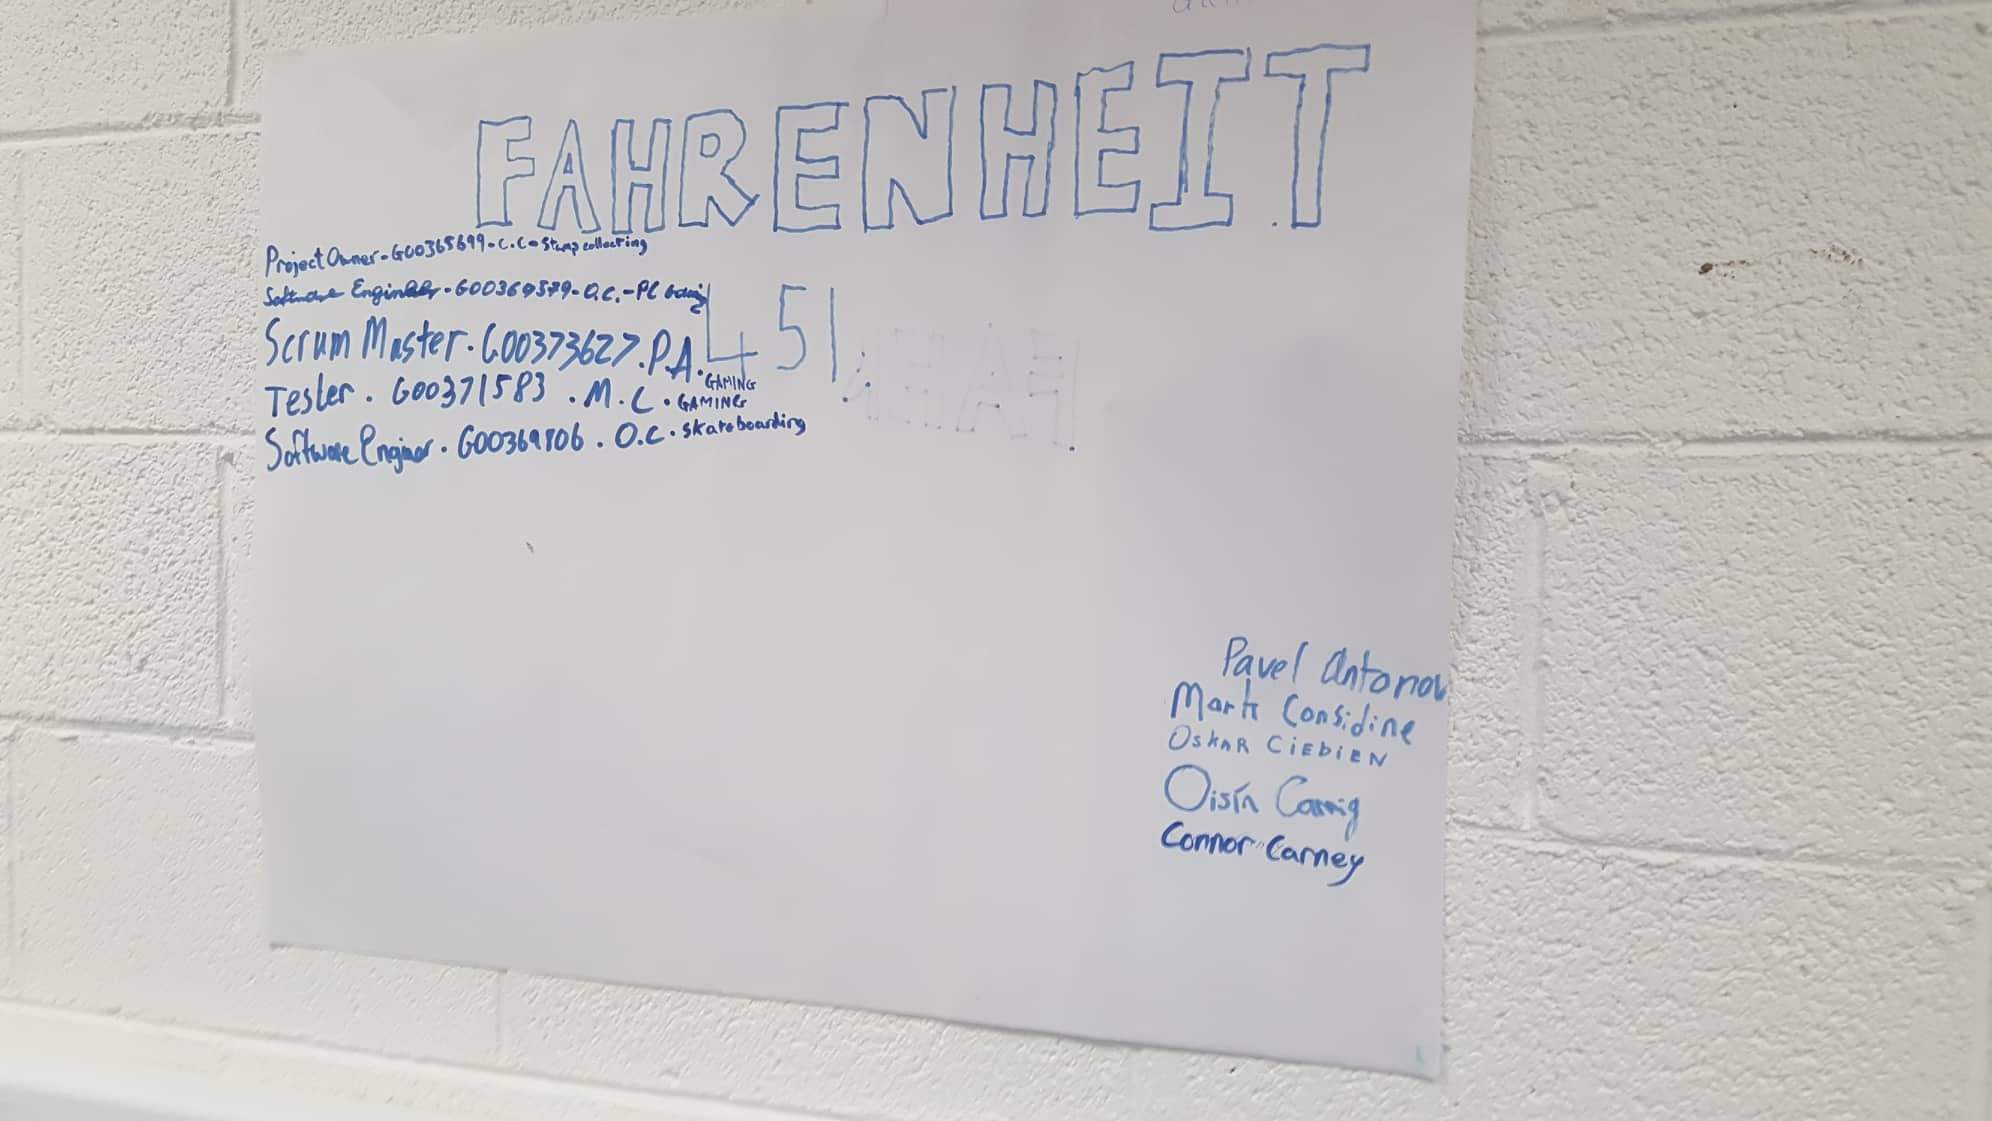 FAHRENHEIT
Project Owner - G00365699 - C.C - Stamp collecting
Software Engineer - G00369379 - O.C. - PC Gaming
451
Scrum Master . G00373627 . P.A. GAMING
Tester . G00371583 . M.C . GAMING
Software Enginer . G00369806 . O.C . skateboarding
Pavel Antonov
Mark Considine
OSKAR CIEBIEN
Oisín
Connor Carney